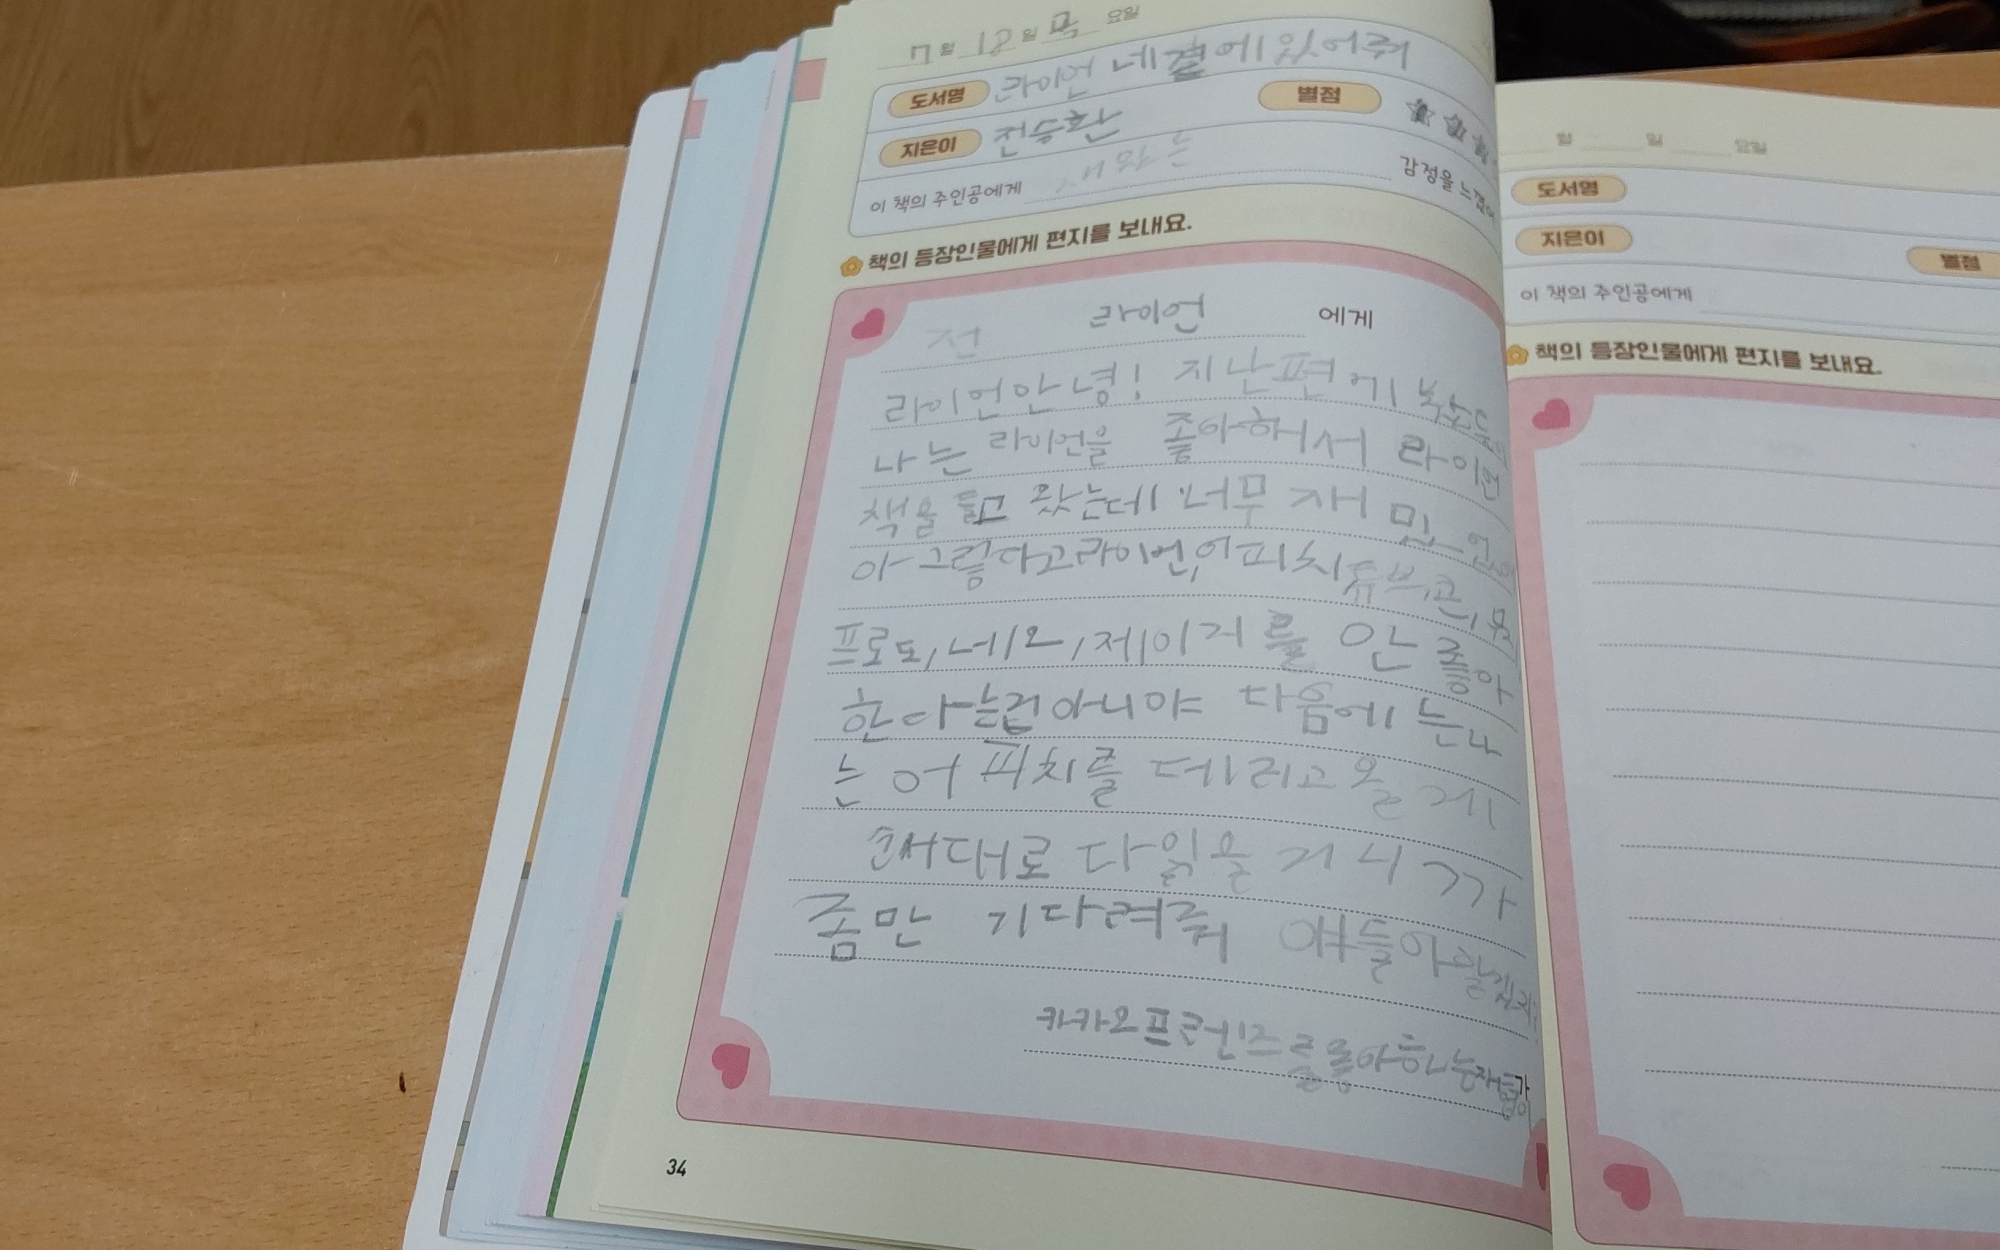 7월 18일 목요일
도서명 라이언 내 곁에 있어줘
별점
지은이 전승환
이 책의 주인공에게 감정을 느꼈어
책의 등장인물에게 편지를 보내요.
라이언 에게
라이언안녕! 지난편에
나는 라이언을 좋아해서 라이언
책을 들고 왔는데 너무 재
아 그렇다고라이언,어피치 튜브,콘,무지
프로도,네오,제이지를 안 좋아
한다는건아니야 다음에는나
는 어피치를 데리고 올게
순서대로 다 읽을 거니까
좀만 기다려줘 얘들아
카카오프렌즈를 좋아하는
34
월 일 요일
도서명
지은이
별점
이 책의 주인공에게
책의 등장인물에게 편지를 보내요.